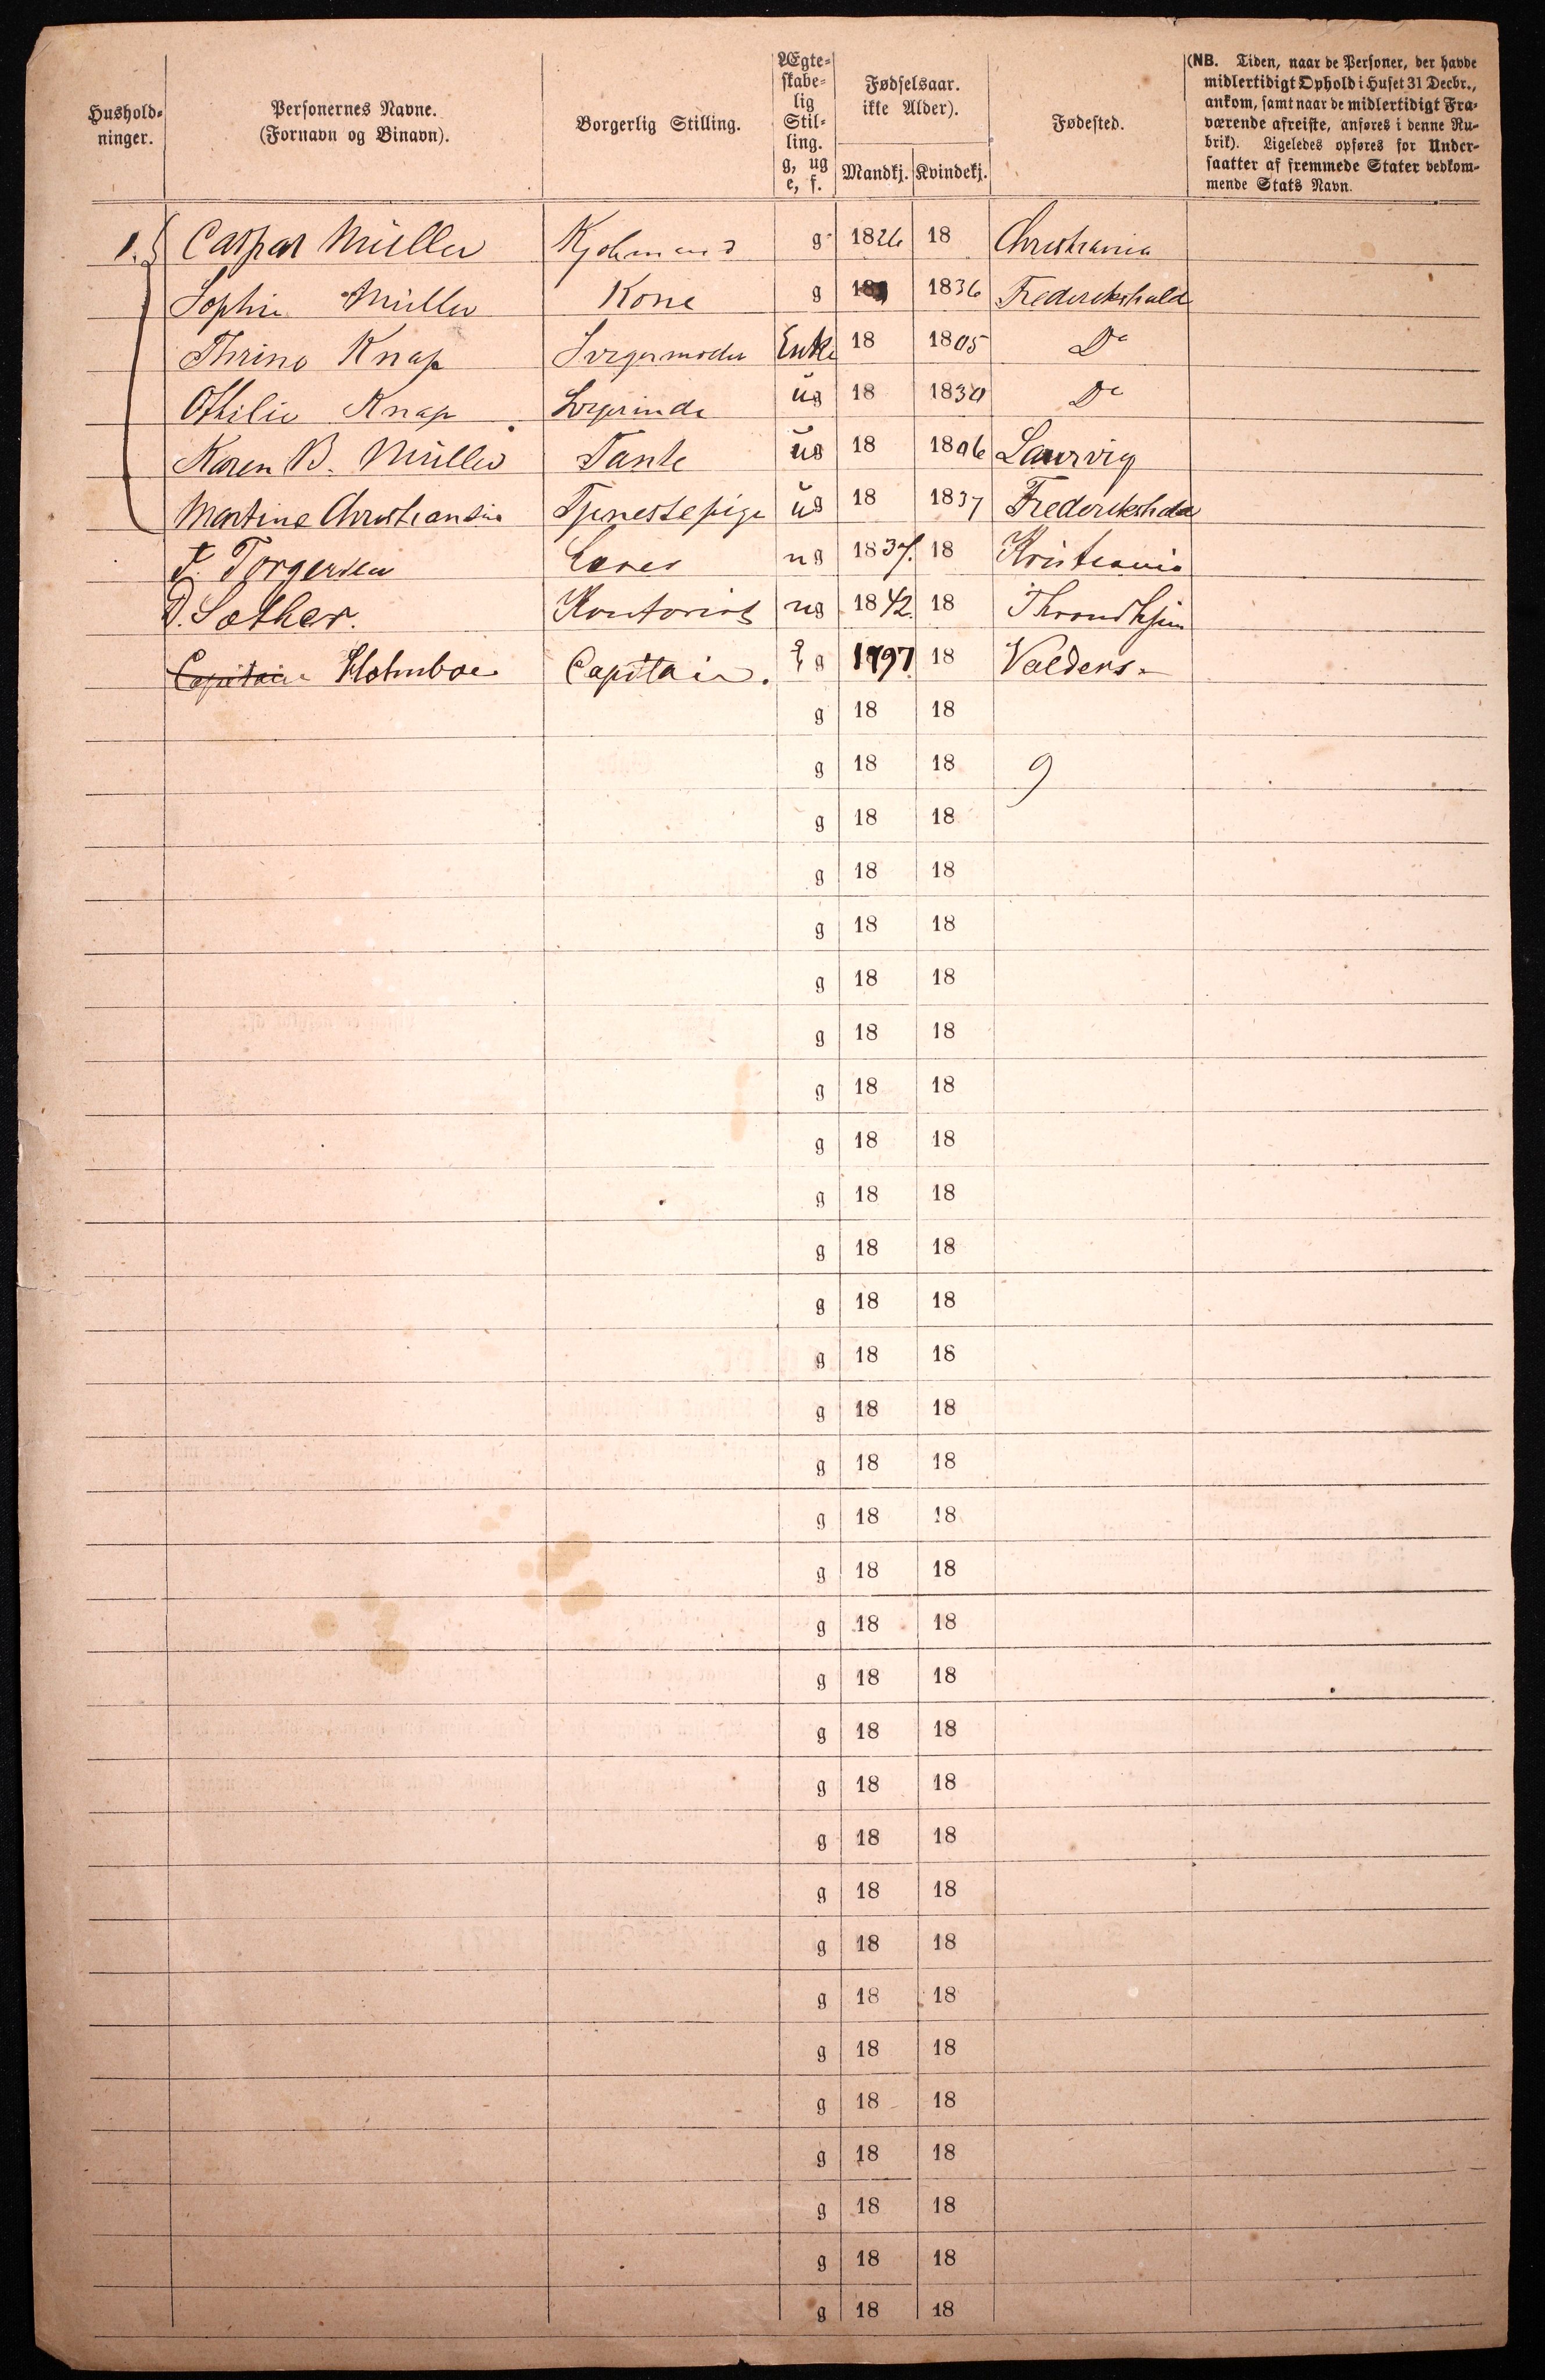 Hushold-
ninger.
Personernes Navne.
(Fornavn og Binavn).
Borgerlig Stilling.
Ægte-
skabe-
lig
Stil-
ling.
g, ug
e, f.
Fødselsaar.
ikke Alder).
Mandkj. Kvindekj.
Fødested.
(NB. Tiden, naar de Personer, der havde
midlertidigt Ophold i Huset 31 Decbr.,
ankom, samt naar de midlertidigt Fra-
værende afreiste, anføres i denne Ru-
brik). Ligeledes opføres for Under-
saatter af fremmede Stater vedkom-
mende Stats Navn.
1. Caspar Müller Kjøbmand g 1826 18 Christiania
Sophie Müller Kone g 18 1836 Frederikshald
Thrine Knap Svigermoder Enke 18 1805 Do
Othilie Knap Svigerinde ug 18 1830 Do
Karen B. Müller Tante ug 18 1806 Laurvig
Martine Christiansen Tjenestepige ug 18 1837 Frederikshald
F. Torgersen ug 1837. 18 Kristiania
D. Sother. Kontorist ug 1842. 18 Throndhjem
Capitain Holmboe Capitain. g 1797 18 Valders.
g 18 18
g 18 18 9
g 18 18
g 18 18
g 18 18
g 18 18
g 18 18
g 18 18
g 18 18
g 18 18
g 18 18
g 18 18
g 18 18
g 18 18
g 18 18
g 18 18
g 18 18
g 18 18
g 18 18
g 18 18
g 18 18
g 18 18
g 18 18
g 18 18
g 18 18
g 18 18
g 18 18
g 18 18
g 18 18
g 18 18
g 18 18